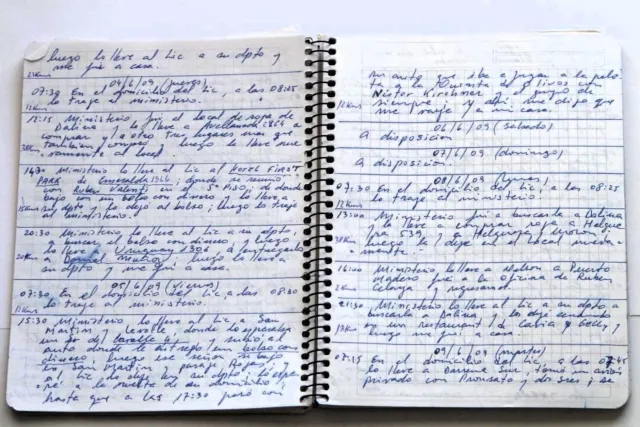 luego lo lleve al Lic a su dpto y
me fui a casa.
04/6/09 (jueves)
07:30 En el domicilio del Lic, a las 08:25
lo traje al ministerio.
12:15 Ministerio fui el local de ropa de
Dalina y la lleve a Avellaneda
comprar y a otro
tambien compro luego la lleve nue
vamente al local.
Ministerio lo lleve al Lic al HOTEL FIRST
PARK de Esmeralda donde se reunio
con Ruben Valenti en el 5º Piso, de donde
bajo con un bolso con dinero y lo lleve a
y lo dejo al bolso; luego lo traje
al ministerio.
20:30 Ministerio lo lleve al Lic a su dpto, a
buscar el bolso con dinero y luego
lo lleve a Uruguay 1306 a entregarselo
a Daniel Muñoz, luego lo lleve a
su dpto y me fui a casa.
05/6/09 (viernes)
07:30 En el domicilio del Lic, a las 08:30
lo traje al ministerio.
15:30 Ministerio lo lleve al Lic a San
Martin y Lavalle, donde lo esperaba
un Sr de Lavalle y subio al
auto donde le entrego un bolso con
dinero, luego ese señor se bajo
en San Martin y pasaje
al Lic lo deje en su dpto; lo espe
re a la vuelta de su domicilio
hasta que a las 17:30 paso con
su auto que iba a jugar a la pelota
a la Quinta de Olivos con
Nestor Kirchner y el grupo de
siempre y ahi me dijo que
me vaya a mi casa.
06/6/09 (sabado)
A disposicion
07/6/09 (domingo)
A disposicion.
08/6/09 (lunes)
07:30 En el domicilio del Lic, a las 08:25
lo traje al ministerio.
13:00 Ministerio fui a buscarla a Dalina
y la lleve a comprar ropa a Helgue
ra 539 y a Helguera y Moron
luego la deje en el local nueva
mente.
16:00 Ministerio lo lleve a Nelson a Puerto
Madero fue a la oficina de Ruben
y regresamos.
21:30 Ministerio lo lleve al Lic a su dpto a
buscarla a Dalina y los deje cenando
en un restaurant de Cabia y Gelly y
luego me fui a casa.
09/6/09 (martes)
07:15 En el domicilio del Lic, a las 07:45
lo lleve a Barrera Sur, tomo un avion
privado con y dos sres; se